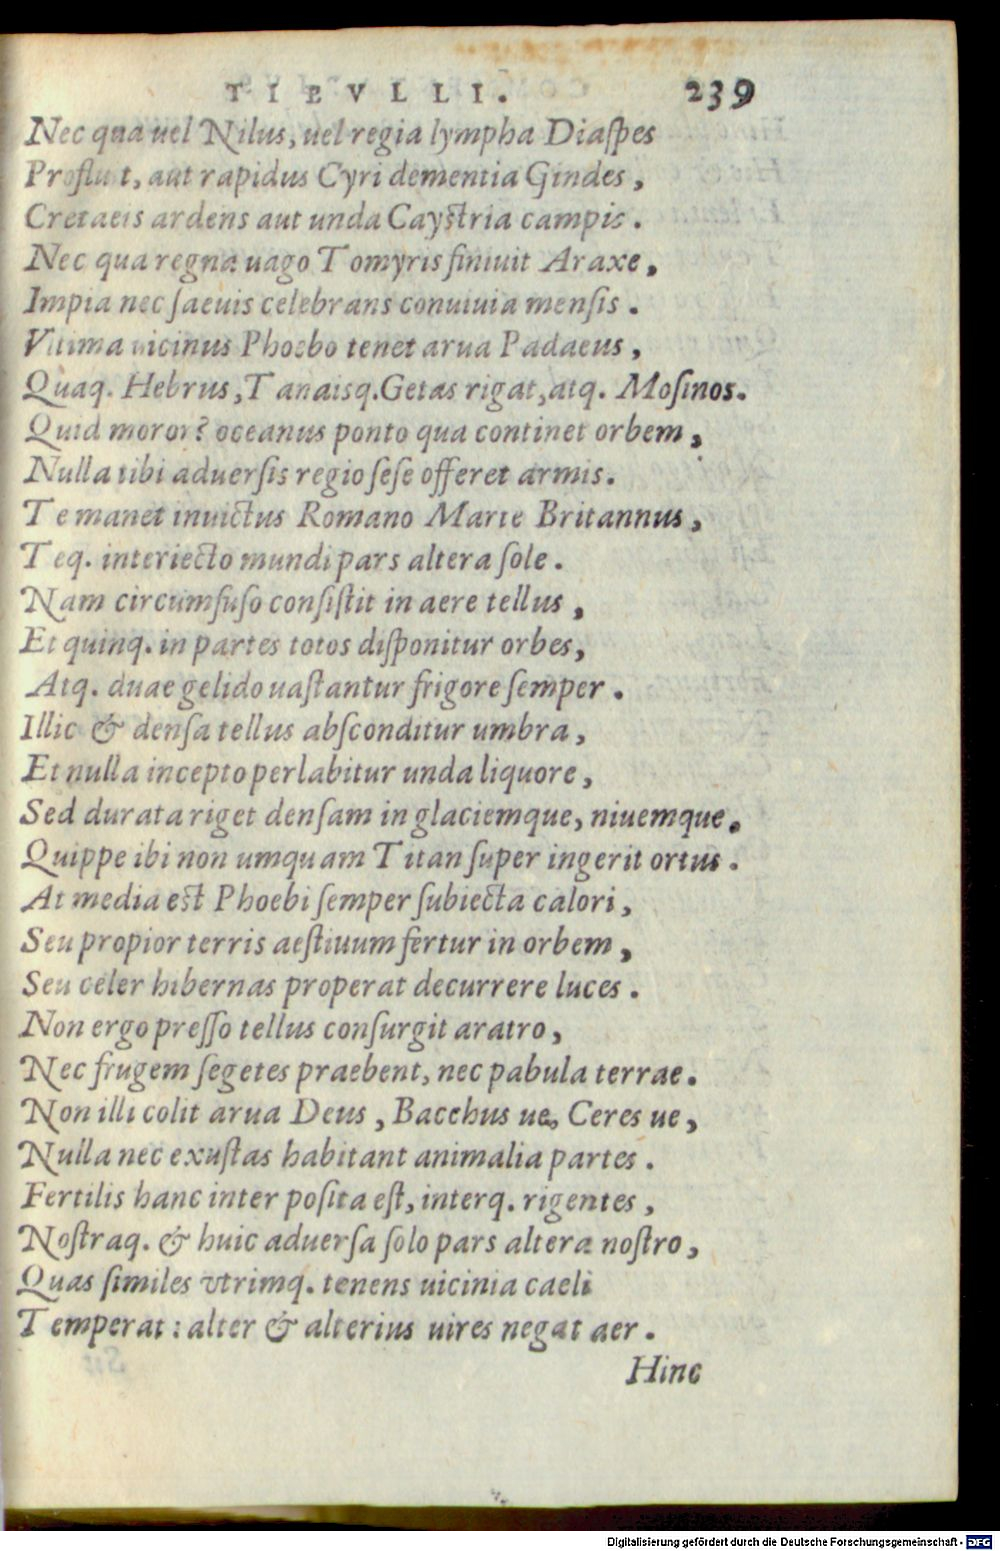 TIBVLLI. 239
Nec qua uel Nilus, uel regia lympha Diaſpes
Profluit, aut rapidus Cyri dementia Gindes,
Cretaeis ardens aut unda Cayſtria campis.
Nec qua regna uago Tomyris finiuit Araxe,
Impia nec ſaeuis celebrans conuiuia menſis.
Vltima uicinus Phoebo tenet arua Padaeus,
Quaq. Hebrus, Tanaisq. Getas rigat, atq. Moſinos.
Quid moror? oceanus ponto qua continet orbem,
Nulla tibi aduerſis regio ſeſe offeret armis.
Te manet inuictus Romano Marte Britannus,
Teq. interiecto mundi pars altera ſole.
Nam circumfuſo conſiſtit in aere tellus,
Et quinq. in partes totos diſponitur orbes,
Atq. duae gelido uaſtantur frigore ſemper.
Illic & denſa tellus abſconditur umbra,
Et nulla incepto perlabitur unda liquore,
Sed durata riget denſam in glaciemque, niuemque.
Quippe ibi non umquam Titan ſuper ingerit ortus.
At media est Phoebi ſemper ſubiecta calori,
Seu propior terris aeſtiuum fertur in orbem,
Seu celer hibernas properat decurrere luces.
Non ergo preſſo tellus conſurgit aratro,
Nec frugem ſegetes praebent, nec pabula terrae.
Non illi colit arua Deus, Bacchus ue, Ceres ue,
Nulla nec exuſtas habitant animalia partes.
Fertilis hanc inter poſita eſt, interq. rigentes,
Noſtraq. & huic aduerſa ſolo pars altera noſtro,
Quas ſimiles vtrimq. tenens uicinia caeli
Temperat: alter & alterius uires negat aer.
Hinc
Digitalisierung gefördert durch die Deutsche Forschungsgemeinschaft - DFG